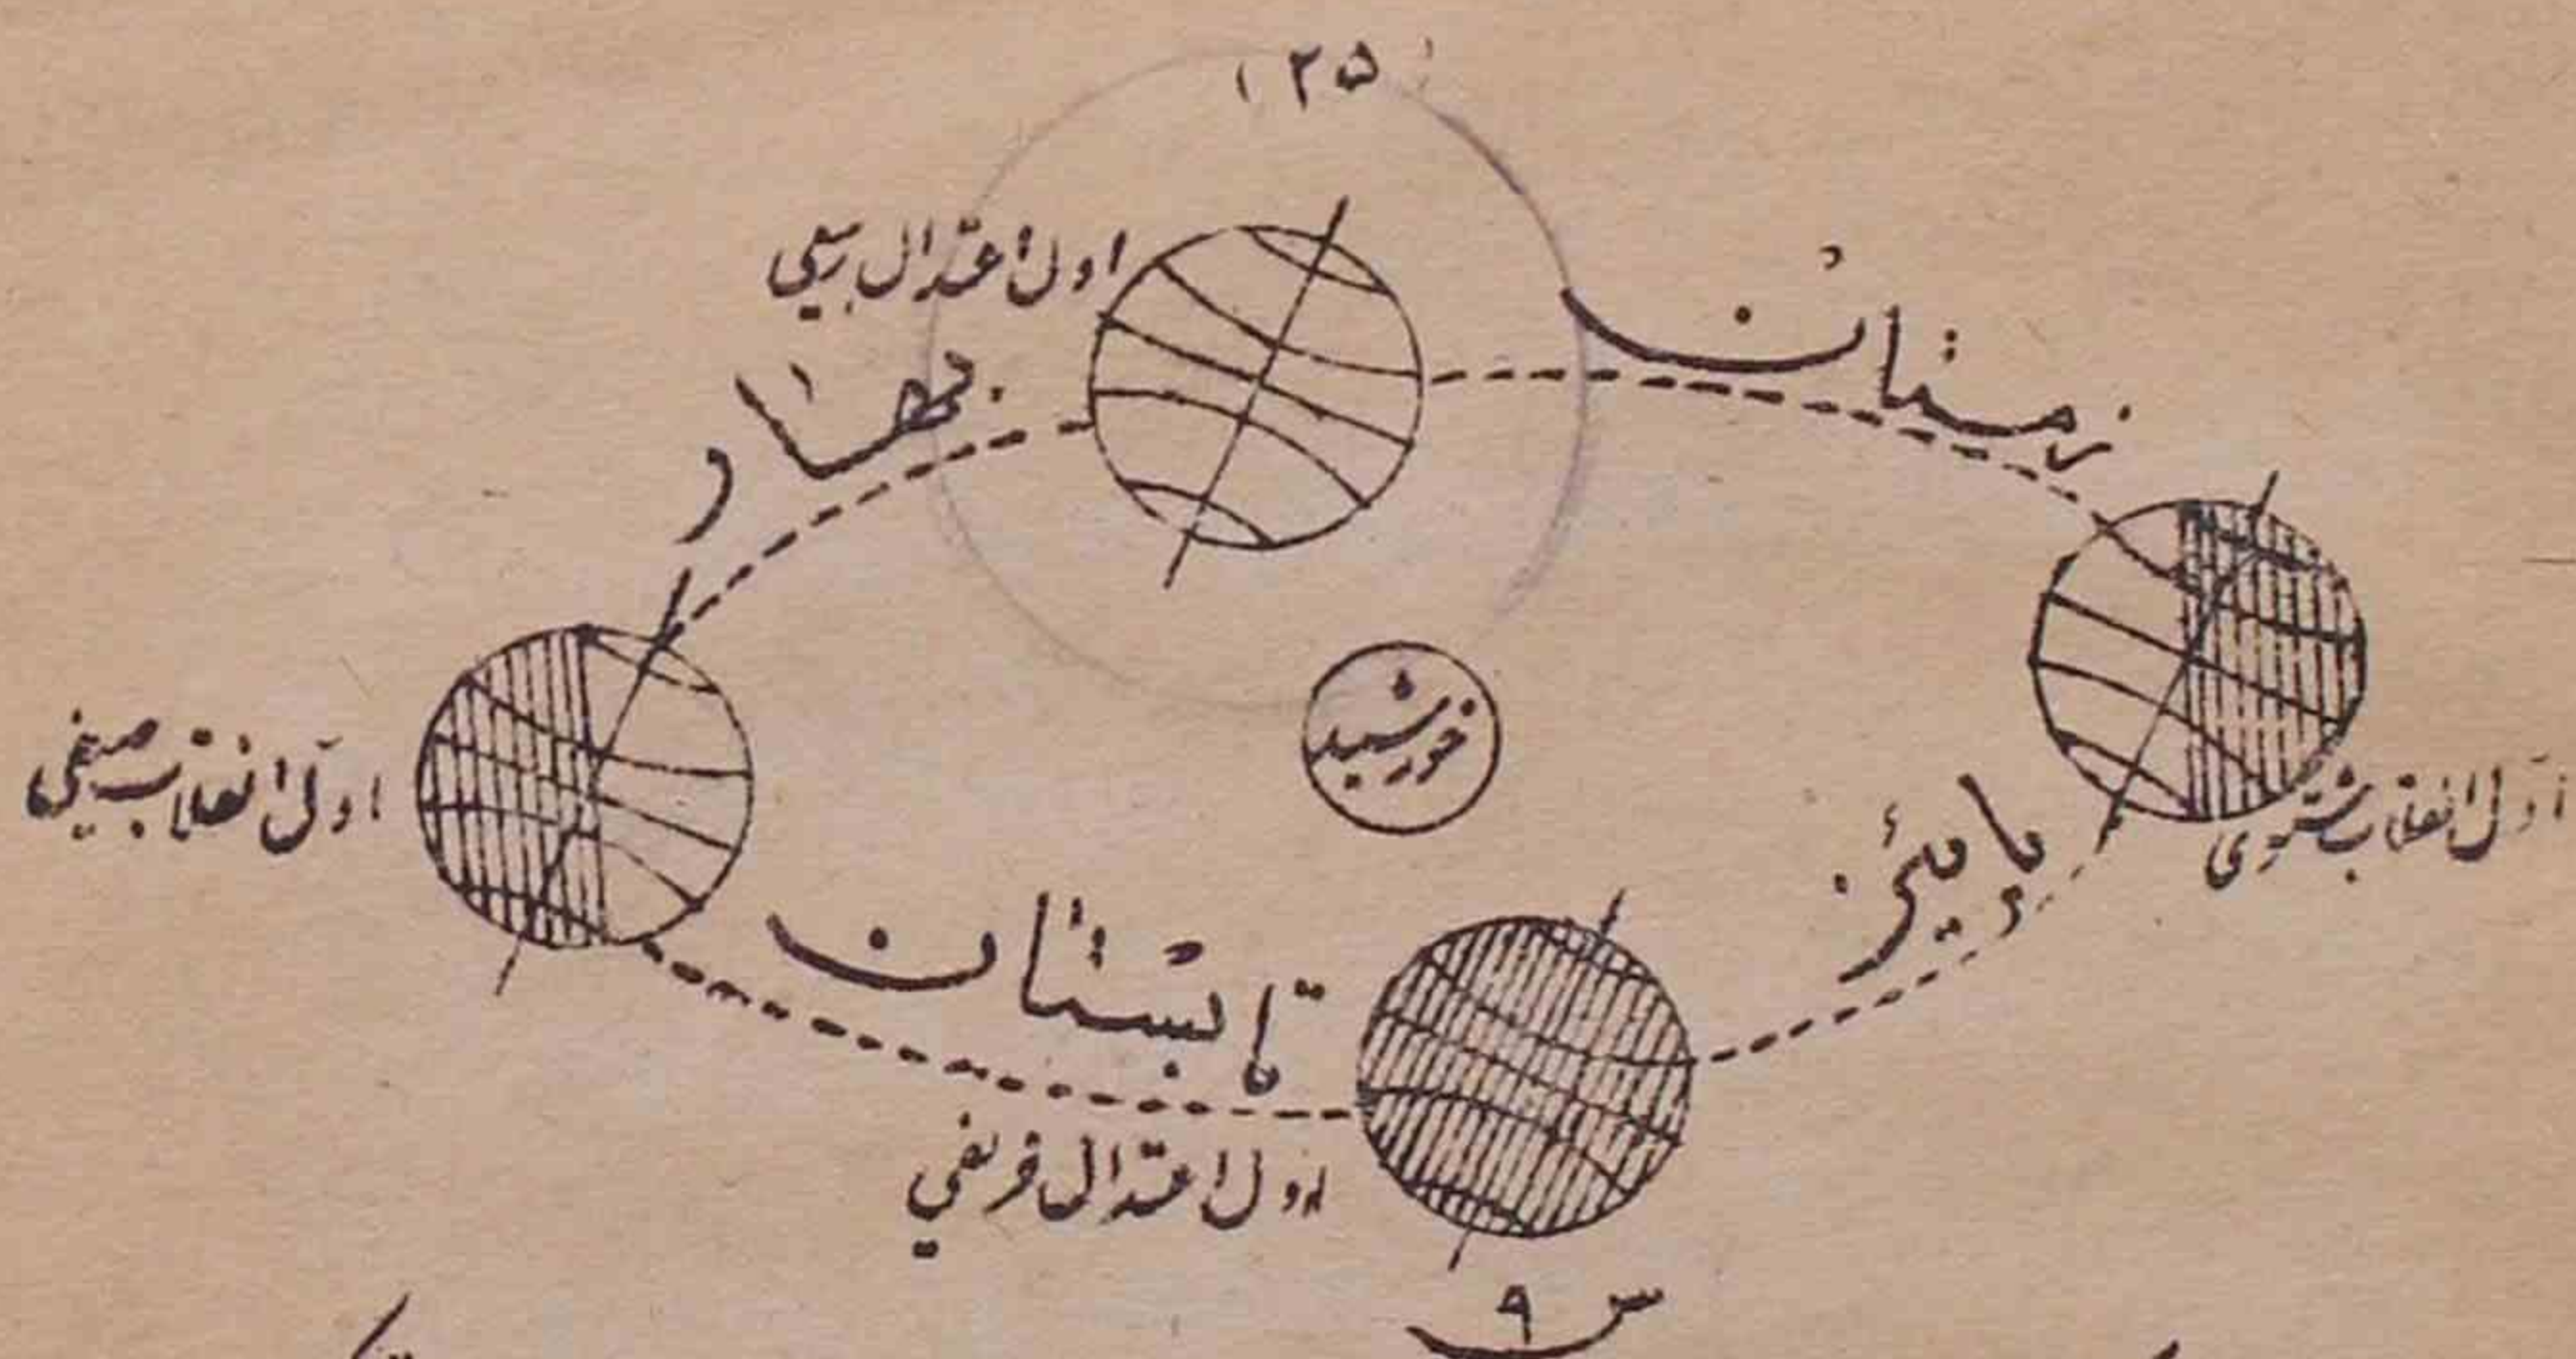 ۱۲۵
اول اعتدال ربیعی
زمستان
بهار
خورشید
اول انقلاب صیفی
اول انقلاب شتوی
پائیز
تابستان
اول اعتدال خریفی
س ۹